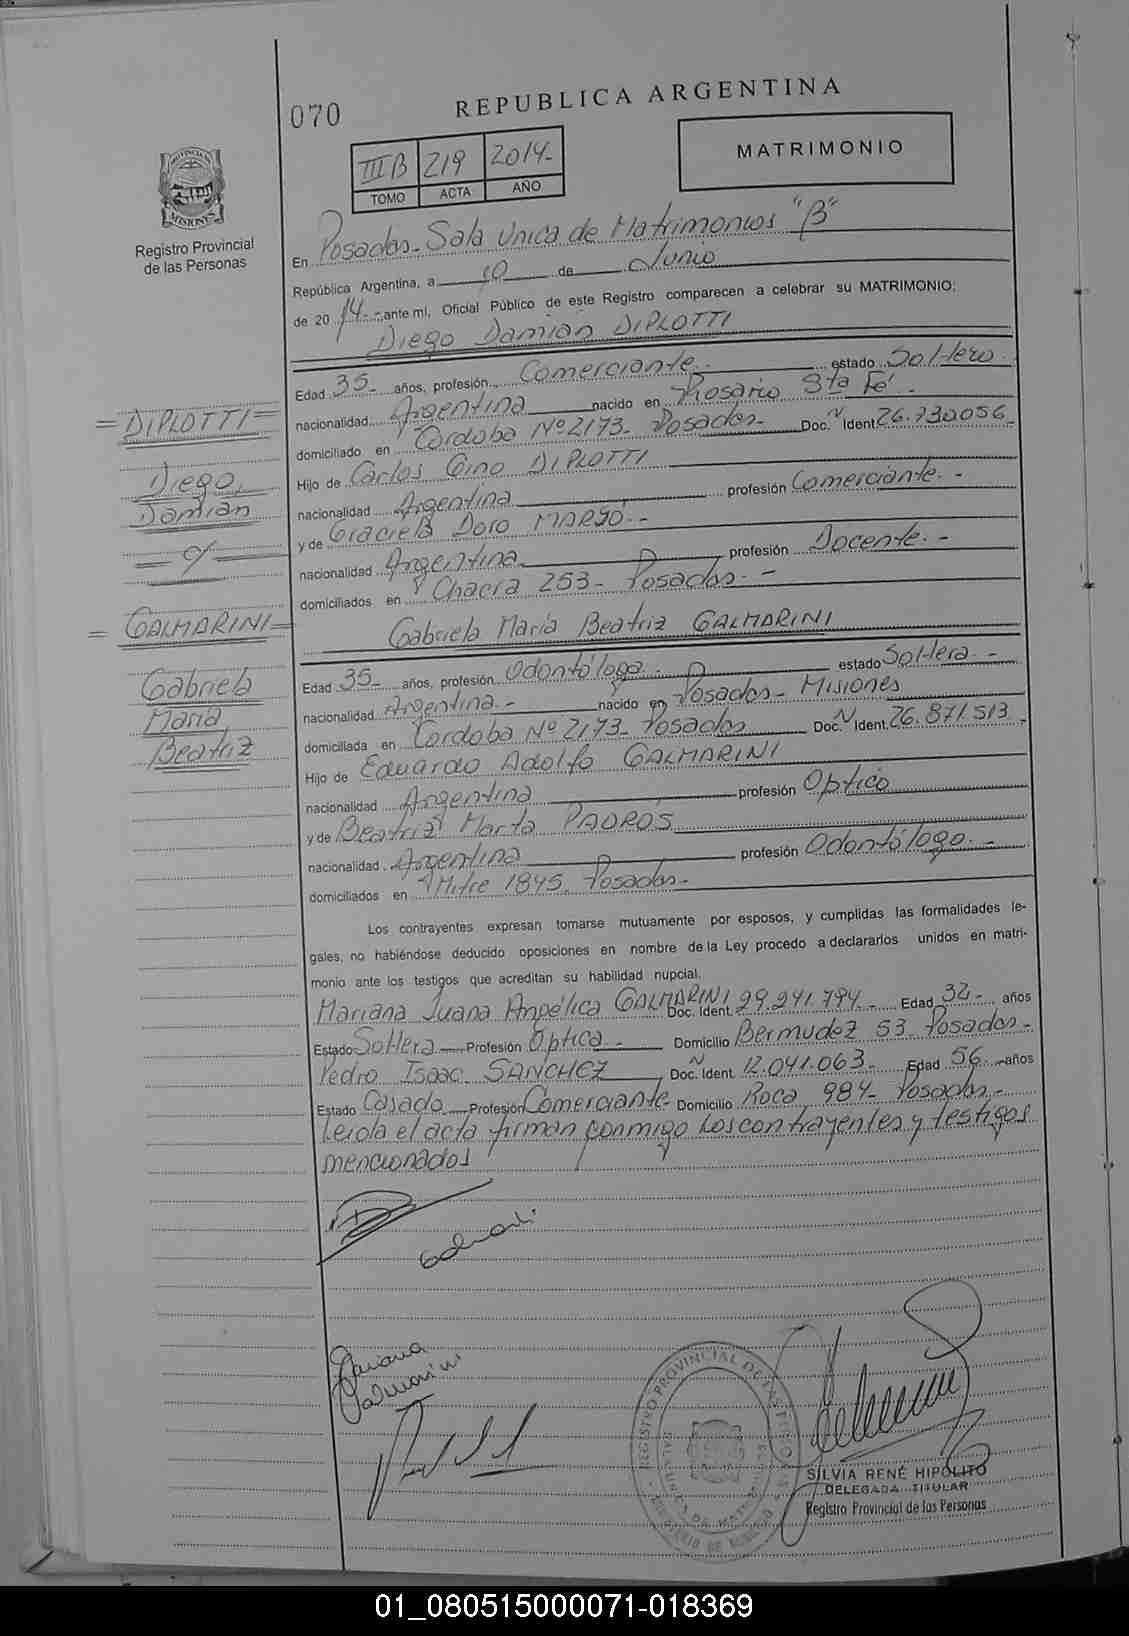 070
REPUBLICA ARGENTINA
III B 219 2014.-
TOMO ACTA AÑO
MATRIMONIO
PROVINCIA DE
MISIONES
Registro Provincial
de las Personas
En Posadas. Sala Unica de Matrimonios "B"
República Argentina, a 10 de Junio
de 20 14.- ante mí, Oficial Público de este Registro comparecen a celebrar su MATRIMONIO:
Diego Damián DIPLOTTI
Edad 35.- años, profesión Comerciante. estado Soltero.
nacionalidad Argentina nacido en Rosario Sta Fé.-
domiciliado en Cordoba Nº 2173. Posadas. Doc. N Ident. 26.730.056.
Hijo de Carlos Gino DIPLOTTI
nacionalidad Argentina profesión Comerciante.-
y de Graciela Dora
nacionalidad Argentina profesión Docente.-
domiciliados en Chacra 253. Posadas.-
Gabriela María Beatriz GALMARINI
Edad 35.- años, profesión Odontóloga. estado Soltera.-
nacionalidad Argentina.- nacido en Posadas. Misiones
domiciliada en Cordoba Nº 2173. Posadas Doc. N Ident. 26.871.513.
Hijo de Eduardo Adolfo GALMARINI
nacionalidad Argentina profesión Optico
y de Beatriz Marta PADRÓS
nacionalidad Argentina profesión Odontólogo.-
domiciliados en Mitre 1845. Posadas.
= DIPLOTTI =
Diego
Damian
= y =
= GALMARINI =
Gabriela
Maria
Beatriz
Los contrayentes expresan tomarse mutuamente por esposos, y cumplidas las formalidades le-
gales, no habiéndose deducido oposiciones en nombre de la Ley procedo a declararlos unidos en matri-
monio ante los testigos que acreditan su habilidad nupcial.
Mariana Juana Angélica GALMARINI Doc. Ident. 29.241.794.- Edad 32.- años
Estado Soltera Profesión Optica.- Domicilio Bermudez 53. Posadas.-
Pedro Isaac SANCHEZ Doc. N Ident. 12.041.063.- Edad 56.- años
Estado Casado Profesión Comerciante. Domicilio Roca 984. Posadas.-
Leida el acta firman conmigo los contrayentes y testigos
mencionados
Galmarini
Mariana
Galmarini
REGISTRO PROVINCIAL DE LAS PERSONAS
SILVIA RENÉ HIPOLITO
DELEGADA TITULAR
Registro Provincial de las Personas
01_080515000071-018369